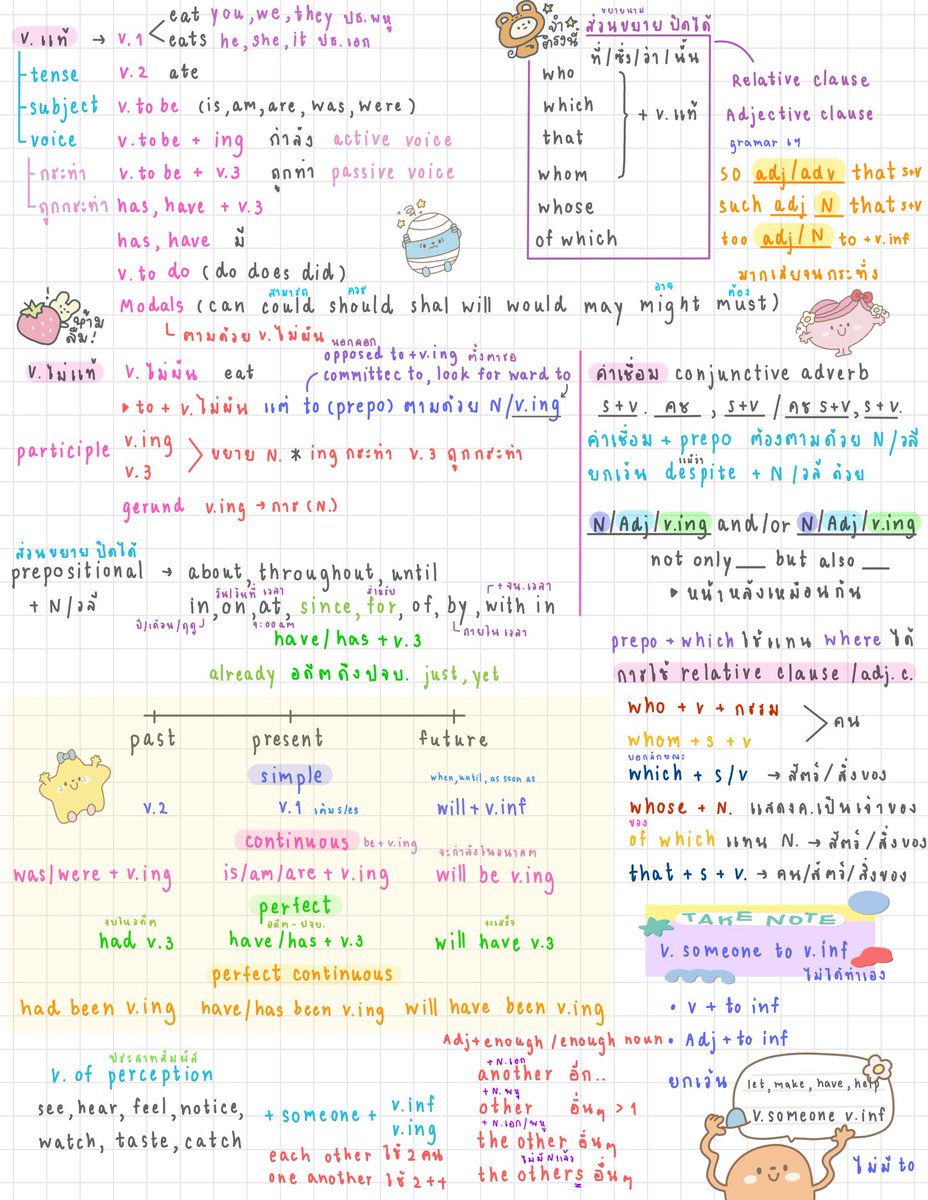 v.แท้ → v.1 eat you, we, they ปธ.พหู
eats he, she, it ปธ.เอก
tense v.2 ate
subject v. to be (is, am, are, was, were)
voice v. to be + ing กำลัง active voice
กระทำ v. to be + v.3 ถูกทำ passive voice
ถูกกระทำ has, have + v.3
has, have มี
v. to do (do does did)
ห้ามลืม!
สามารถ ควร อาจ ต้อง
Modals (can could should shal will would may might must)
ตามด้วย v.ไม่ผัน
จำตรงนี้
ขยายนาม
ส่วนขยาย ปิดได้
ที่/ซึ่ง/ว่า/นั้น
who
which
that
whom
+ v.แท้
whose
of which
Relative clause
Adjective clause
gramar ง่ายๆ
so adj/adv that s+v
such adj N that s+v
too adj/N to + v.inf
มากเสียจนกระทั่ง
v.ไม่แท้ v.ไม่ผัน eat
นอกลอก
opposed to + v.ing ตั้งตารอ
committec to, look for ward to
▸ to + v.ไม่ผัน แต่ to (prepo) ตามด้วย N/v.ing
participle v.ing
v.3
ขยาย N. * ing กระทำ v.3 ถูกกระทำ
gerund v.ing → การ (N.)
คำเชื่อม conjunctive adverb
s+v . คช , s+v / คช s+v, s+v.
คำเชื่อม + prepo ต้องตามด้วย N/วลี
แม้ว่า
ยกเว้น despite + N/วลี ด้วย
N/Adj/v.ing and/or N/Adj/v.ing
not only __ but also __
▸ หน้าหลังเหมือนกัน
ส่วนขยาย ปิดได้
prepositional → about, throughout, until
+ N/วลี
วัน/วันที่ เวลา สำหรับ + จน.เวลา
in, on, at, since, for, of, by, with in
ปี/เดือน/ฤดู 9:00 am ภายในเวลา
have/has + v.3
already อดีตถึงปจบ. just, yet
prepo + which ใช้แทน where ได้
การใช้ relative clause /adj. c.
who + v + กรรม
whom + s + v
คน
บอกลักษณะ
which + s/v → สัตว์/สิ่งของ
whose + N. แสดงค.เป็นเจ้าของ
ของ
of which แทน N. → สัตว์/สิ่งของ
that + s + v. → คน/สัตว์/สิ่งของ
past present future
simple when, until, as soon as
v.2 v.1 เติม s/es will + v.inf
continuous be + v.ing
จะกำลังในอนาคต
was/were + v.ing is/am/are + v.ing will be v.ing
perfect
จบในอดีต อดีต - ปจบ. จะเสร็จ
had v.3 have/has + v.3 will have v.3
perfect continuous
had been v.ing have/has been v.ing will have been v.ing
TAKE NOTE
v. someone to v.inf
ไม่ได้ทำเอง
• v + to inf
• Adj + to inf
ยกเว้น let, make, have, help
v. someone v.inf
ไม่มี to
ประสาทสัมผัส
v. of perception
see, hear, feel, notice,
watch, taste, catch
+ someone + v.inf
v.ing
each other ใช้ 2 คน
one another ใช้ 2++
Adj + enough / enough noun
+ N.เอก
another อีก..
+ N.พหู
other อื่นๆ > 1
+ N.เอก/พหู
the other อื่นๆ
ไม่มี N แล้ว
the others อื่นๆ